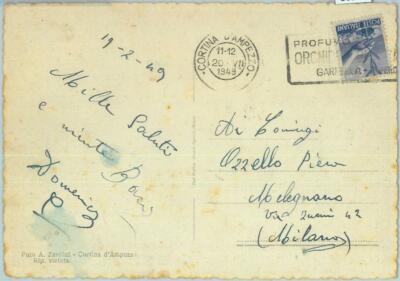 19-2-49
Mille saluti
e niente Baci
Domenica
CORTINA D'AMPEZZO
11-12
20 VII
1949
POSTE ITALIANE
PROFU
Ozzello Piero
Melegnano
Via 42
(Milano)
Foto A. Zardini - Cortina d'Ampezzo
Rip. vietata